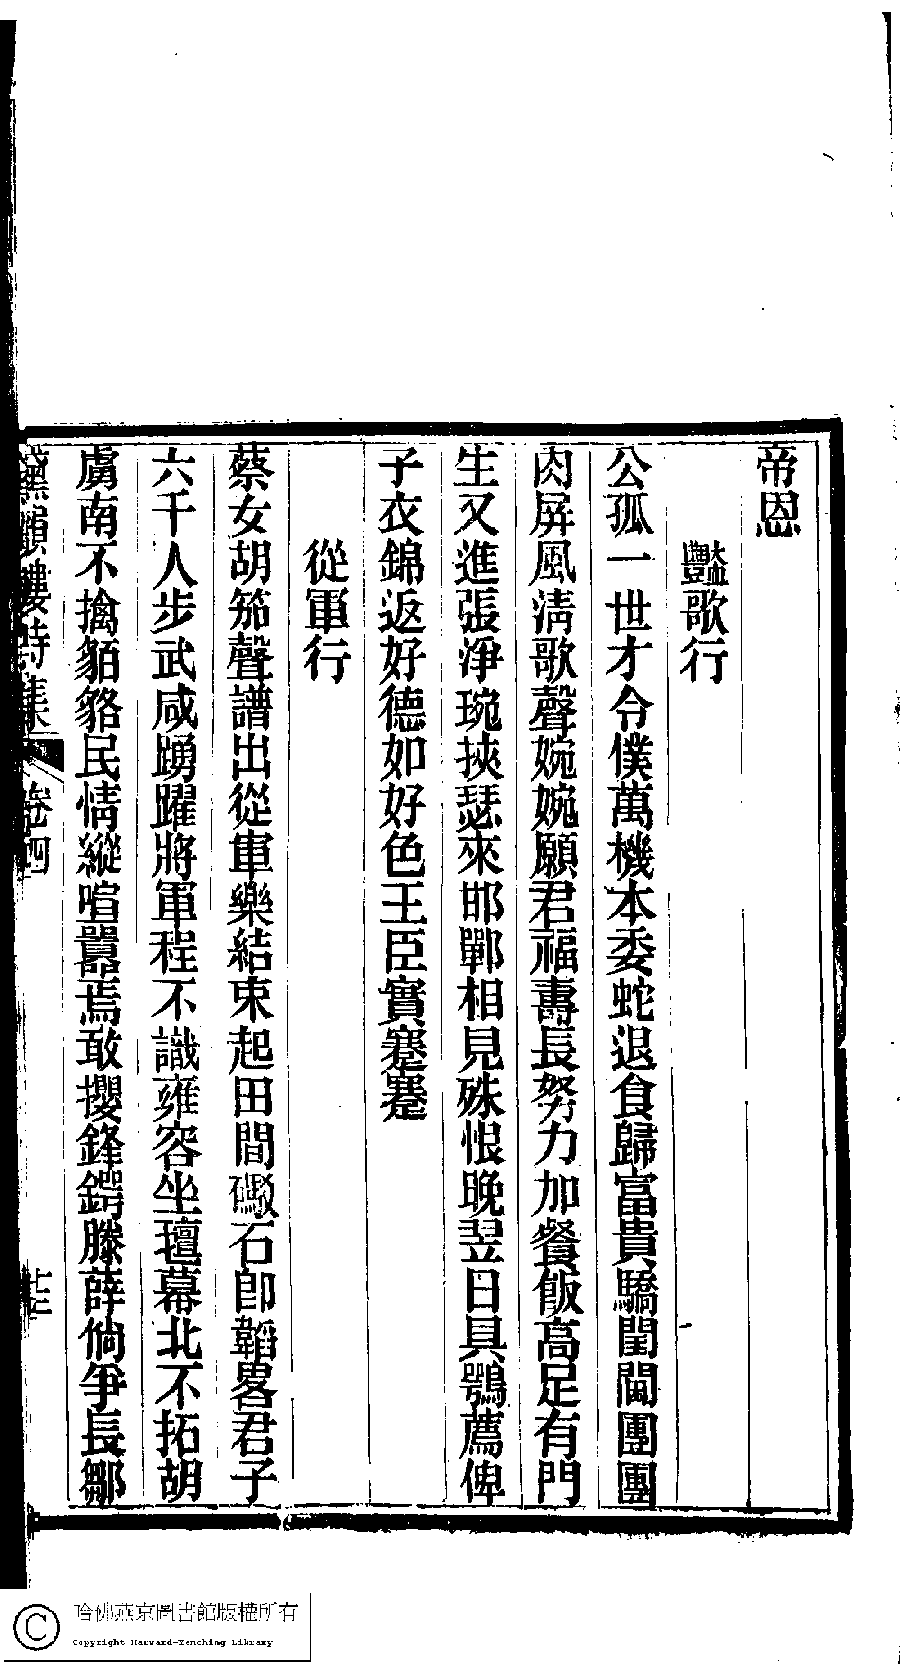 帝恩
豔歌行
公孤一世才令僕萬機本委蛇退食歸富貴驕閨閫團團
肉屏風淸歌聲婉婉願君福壽長努力加餐飯高足有門
生又進張淨琬挾瑟來邯鄲相見殊恨晚翌日具鶚薦俾
子衣錦返好德如好色王臣實蹇蹇
從軍行
蔡女胡笳聲譜出從軍樂結束起田間礮石卽韜畧君子
六千人步武咸踴躍將軍程不識雍容坐壇幕北不拓胡
虜南不擒貊貉民情縱喧囂焉敢攖鋒鍔滕薛倘爭長鄒
樓詩集 卷四 廿三
哈佛燕京圖書館版權所有
Copyright Harvard-Yenching Library